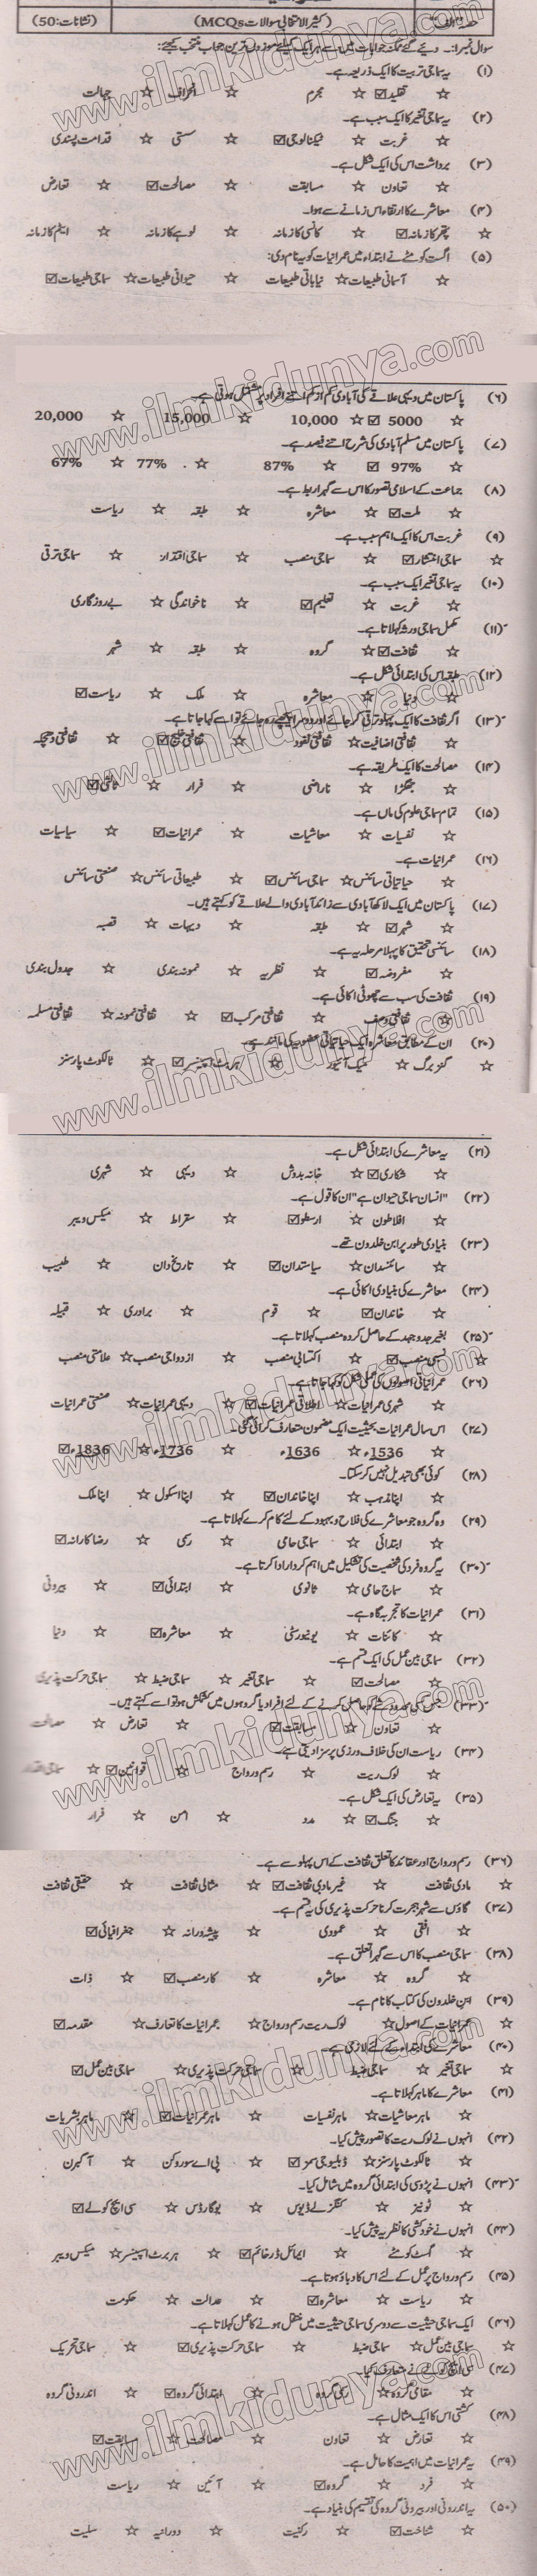 حصہ "الف" (کثیر الانتخابی سوالات MCQs) (نشانات: 50)
سوال نمبرا:۔ دیئے گئے ممکنہ جوابات میں سے ہر ایک کیلئے موزوں ترین جواب منتخب کیجئے:
(۱) یہ سماجی تربیت کا ایک ذریعہ ہے۔
☆ تقلید ☑ ☆ مجرم ☆ انحراف ☆ جہالت
(۲) یہ سماجی تغیر کا ایک سبب ہے۔
☆ غربت ☆ ٹیکنالوجی ☑ ☆ سستی ☆ قدامت پسندی
(۳) برداشت اس کی ایک شکل ہے۔
☆ تعاون ☆ مسابقت ☆ مصالحت ☑ ☆ تعارض
(۴) معاشرے کا ارتقاء اس زمانے سے ہوا۔
☆ پتھر کا زمانہ ☑ ☆ کانسی کا زمانہ ☆ لوہے کا زمانہ ☆ ایٹم کا زمانہ
(۵) آگست کومٹے نے ابتداء میں عمرانیات کو یہ نام دی:
☆ آسمانی طبیعات ☆ نباتاتی طبیعات ☆ حیوانی طبیعات ☆ سماجی طبیعات ☑
www.ilmkidunya.com
(۶) پاکستان میں دیہی علاقے کی آبادی کم از کم اتنے افراد پر مشتمل ہوتی ہے۔
☆ 5000 ☑ ☆ 10,000 ☆ 15,000 ☆ 20,000
(۷) پاکستان میں مسلم آبادی کی شرح اتنے فیصد ہے۔
☆ 97% ☑ ☆ 87% ☆ 77% ☆ 67%
(۸) جماعت کے اسلامی تصور کا اس سے گہرا ربط ہے۔
☆ ملت ☑ ☆ معاشرہ ☆ طبقہ ☆ ریاست
(۹) غربت اس کا ایک اہم سبب ہے۔
☆ سماجی انتشار ☑ ☆ سماجی منصب ☆ سماجی اقتدار ☆ سماجی ترقی
(۱۰) یہ سماجی تغیر ایک سبب ہے۔
☆ غربت ☆ تعلیم ☑ ☆ ناخواندگی ☆ بے روزگاری
(۱۱) مکمل سماجی ورثہ کہلاتا ہے۔
☆ ثقافت ☑ ☆ گروہ ☆ طبقہ ☆ شہر
(۱۲) طبقہ اس کی ابتدائی شکل ہے۔
☆ دنیا ☆ معاشرہ ☆ ملک ☆ ریاست ☑
(۱۳) اگر ثقافت کا ایک پہلو ترقی کر جائے اور دوسرا پیچھے رہ جائے تو اسے کہا جاتا ہے۔
☆ ثقافتی اضافیت ☆ ثقافتی نفوذ ☆ ثقافتی خلیج ☑ ☆ ثقافتی دھچکہ
(۱۴) مصالحت کا ایک طریقہ ہے۔
☆ جھگڑا ☆ ناراضی ☆ فرار ☆ ثالثی ☑
(۱۵) تمام سماجی علوم کی ماں ہے۔
☆ نفسیات ☆ معاشیات ☆ عمرانیات ☑ ☆ سیاسیات
(۱۶) عمرانیات ہے۔
☆ حیاتیاتی سائنس ☆ سماجی سائنس ☑ ☆ طبیعاتی سائنس ☆ صنعتی سائنس
(۱۷) پاکستان میں ایک لاکھ آبادی سے زائد آبادی والے علاقے کو کہتے ہیں۔
☆ شہر ☑ ☆ طبقہ ☆ دیہات ☆ قصبہ
(۱۸) سائنسی تحقیق کا پہلا مرحلہ یہ ہے۔
☆ مفروضہ ☑ ☆ نظریہ ☆ نمونہ بندی ☆ جدول بندی
(۱۹) ثقافت کی سب سے چھوٹی اکائی ہے۔
☆ ثقافتی وصف ☆ ثقافتی مرکب ☑ ☆ ثقافتی نمونہ ☆ ثقافتی مسلمہ
(۲۰) ان کے مطابق معاشرہ ایک حیاتیاتی عضویہ کی مانند ہے۔
☆ گنز برگ ☆ میک آئیور ☆ ہربرٹ اسپنسر ☑ ☆ ٹالکوٹ پارسنز
www.ilmkidunya.com
(۲۱) یہ معاشرے کی ابتدائی شکل ہے۔
☆ شکاری ☑ ☆ خانہ بدوش ☆ دیہی ☆ شہری
(۲۲) "انسان سماجی حیوان ہے" ان کا قول ہے۔
☆ افلاطون ☆ ارسطو ☑ ☆ سقراط ☆ میکس ویبر
(۲۳) بنیادی طور پر ابن خلدون تھے۔
☆ سائنسدان ☆ سیاستدان ☑ ☆ تاریخ دان ☆ طبیب
(۲۴) معاشرے کی بنیادی اکائی ہے۔
☆ خاندان ☑ ☆ قوم ☆ برادری ☆ قبیلہ
(۲۵) بغیر جدوجہد کے حاصل کردہ منصب کہلاتا ہے۔
☆ نسبی منصب ☑ ☆ اکتسابی منصب ☆ ازدواجی منصب ☆ علامتی منصب
(۲۶) عمرانیاتی اصولوں کی عملی شکل کو کہا جاتا ہے۔
☆ شہری عمرانیات ☆ اطلاقی عمرانیات ☑ ☆ دیہی عمرانیات ☆ صنعتی عمرانیات
(۲۷) اس سال عمرانیات بحیثیت ایک مضمون متعارف کرائی گئی۔
☆ 1536ء ☆ 1636ء ☆ 1736ء ☆ 1836ء ☑
(۲۸) کوئی بھی تبدیل نہیں کر سکتا۔
☆ اپنا مذہب ☆ اپنا خاندان ☑ ☆ اپنا اسکول ☆ اپنا ملک
(۲۹) وہ گروہ جو معاشرے کی فلاح و بہبود کے لئے کام کرے کہلاتا ہے۔
☆ ابتدائی ☆ سماجی حامی ☆ رسمی ☆ رضاکارانہ ☑
(۳۰) یہ گروہ فرد کی شخصیت کی تشکیل میں اہم کردار ادا کرتا ہے۔
☆ سماج حامی ☆ ثانوی ☆ ابتدائی ☑ ☆ بیرونی
(۳۱) عمرانیات کا تجربہ گاہ ہے۔
☆ کائنات ☆ یونیورسٹی ☆ معاشرہ ☑ ☆ دنیا
(۳۲) سماجی بین عمل کی ایک قسم ہے۔
☆ مصالحت ☑ ☆ سماجی تغیر ☆ سماجی ضبط ☆ سماجی حرکت پذیری
(۳۳) جس کی محدود شے کو حاصل کرنے کے لئے افراد یا گروہوں میں کشمکش ہو تو اسے کہتے ہیں۔
☆ تعاون ☆ مسابقت ☑ ☆ تعارض ☆ مصالحت
(۳۴) ریاست ان کی خلاف ورزی پر سزا دیتی ہے۔
☆ لوک ریت ☆ رسم و رواج ☆ قوانین ☑ ☆ سماجی اقدار
(۳۵) یہ تعارض کی ایک شکل ہے۔
☆ جنگ ☑ ☆ مدد ☆ امن ☆ فرار
www.ilmkidunya.com
(۳۶) رسم و رواج اور عقائد کا تعلق ثقافت کے اس پہلو سے ہے۔
☆ مادی ثقافت ☆ غیر مادی ثقافت ☑ ☆ مثالی ثقافت ☆ حقیقی ثقافت
(۳۷) گاؤں سے شہر ہجرت کرنا حرکت پذیری کی یہ قسم ہے۔
☆ افقی ☆ عمودی ☆ پیشہ ورانہ ☆ جغرافیائی ☑
(۳۸) سماجی منصب کا اس سے گہرا تعلق ہے۔
☆ گروہ ☆ معاشرہ ☆ کار منصب ☑ ☆ ذات
(۳۹) ابن خلدون کی کتاب کا نام ہے۔
☆ عمرانیات کے اصول ☆ لوک ریت رسم و رواج ☆ عمرانیات کا تعارف ☆ مقدمہ ☑
(۴۰) معاشرے کی ابتداء کے لئے لازمی ہے۔
☆ سماجی تغیر ☆ سماجی ضبط ☆ سماجی حرکت پذیری ☆ سماجی بین عمل ☑
(۴۱) معاشرے کا ماہر کہلاتا ہے۔
☆ ماہر معاشیات ☆ ماہر نفسیات ☆ ماہر عمرانیات ☑ ☆ ماہر بشریات
(۴۲) انہوں نے لوک ریت کا تصور پیش کیا۔
☆ ٹالکوٹ پارسنز ☆ ڈبلیو جی سمنر ☑ ☆ پی اے سوروکن ☆ آگبرن
(۴۳) انہوں نے پڑوسی کی ابتدائی گروہ میں شامل کیا۔
☆ ٹونیز ☆ کنگزلے ڈیوس ☆ بوگارڈس ☆ سی ایچ کولے ☑
(۴۴) انہوں نے خود کشی کا نظریہ پیش کیا۔
☆ آگسٹ کومٹے ☆ ایمائل ڈرخائم ☑ ☆ ہربرٹ اسپنسر ☆ میکس ویبر
(۴۵) رسم و رواج پر عمل کے لئے اس کا دباؤ ہوتا ہے۔
☆ ریاست ☆ معاشرہ ☑ ☆ عدالت ☆ حکومت
(۴۶) ایک سماجی حیثیت سے دوسری سماجی حیثیت میں منتقل ہونے کا عمل کہلاتا ہے۔
☆ سماجی بین عمل ☆ سماجی ضبط ☆ سماجی حرکت پذیری ☑ ☆ سماجی تحریک
(۴۷) سی ایچ کولے نے متعارف کیا۔
☆ مقامی گروہ ☆ رسمی گروہ ☆ ابتدائی گروہ ☑ ☆ اندرونی گروہ
(۴۸) کشتی اس کا ایک مثال ہے۔
☆ تعارض ☆ تعاون ☆ مصالحت ☆ مسابقت ☑
(۴۹) یہ عمرانیات میں اہمیت کا حامل ہے۔
☆ فرد ☆ گروہ ☑ ☆ آئین ☆ ریاست
(۵۰) یہ اندرونی اور بیرونی گروہ کی تقسیم کی بنیاد ہے۔
☆ شناخت ☑ ☆ رکنیت ☆ دورانیہ ☆ سلیت